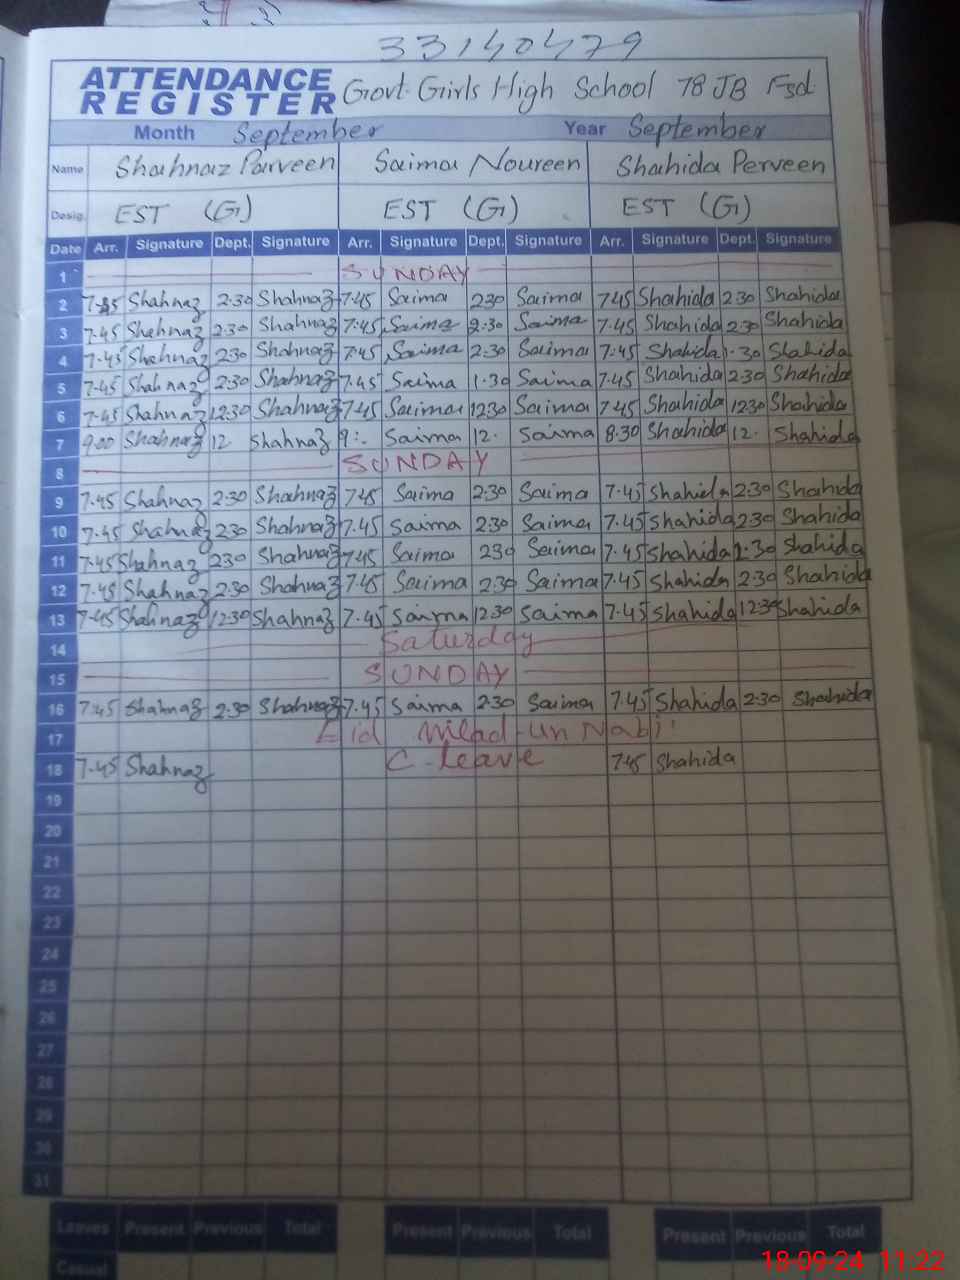 33140479
ATTENDANCE
REGISTER Govt. Girls High School 78 JB Fsd
Month September Year September
Name Shahnaz Parveen Saima Noureen Shahida Perveen
Desig. EST (G) EST (G) EST (G)
Date Arr. Signature Dept. Signature Arr. Signature Dept. Signature Arr. Signature Dept. Signature
1 SUNDAY
2 7-45 Shahnaz 2:30 Shahnaz 7-45 Saima 230 Saima 745 Shahida 230 Shahida
3 7-45 Shahnaz 2:30 Shahnaz 7:45 Saima 2:30 Saima 7.45 Shahida 230 Shahida
4 7-45 Shahnaz 2:30 Shahnaz 7:45 Saima 2:30 Saima 7:45 Shahida 1-30 Shahida
5 7-45 Shahnaz 2:30 Shahnaz 7.45 Saima 1-30 Saima 7.45 Shahida 2:30 Shahida
6 7-45 Shahnaz 12:30 Shahnaz 7-45 Saima 1230 Saima 7-45 Shahida 1230 Shahida
7 9:00 Shahnaz 12 Shahnaz 9:- Saima 12. Saima 8:30 Shahida 12. Shahida
8 SUNDAY
9 7.45 Shahnaz 2:30 Shahnaz 745 Saima 2:30 Saima 7-45 Shahida 2:30 Shahida
10 7-45 Shahnaz 230 Shahnaz 7.45 Saima 2:30 Saima 7.45 Shahida 2:30 Shahida
11 7-45 Shahnaz 230 Shahnaz 7-45 Saima 230 Saima 7.45 Shahida 2:30 Shahida
12 7-45 Shahnaz 2:30 Shahnaz 7-45 Saima 2:30 Saima 7-45 Shahida 2:30 Shahida
13 7-45 Shahnaz 12:30 Shahnaz 7-45 Saima 12:30 Saima 7-45 Shahida 12:30 Shahida
14 Saturday
15 SUNDAY
16 7:45 Shahnaz 2:30 Shahnaz 7.45 Saima 2:30 Saima 7.45 Shahida 2:30 Shahida
17 Eid Milad-un Nabi
18 7-45 Shahnaz C-leave 7:45 Shahida
19
20
21
22
23
24
25
26
27
28
29
30
31
Leaves Present Previous Total Present Previous Total Present Previous Total
Casual
18-09-24 11:22